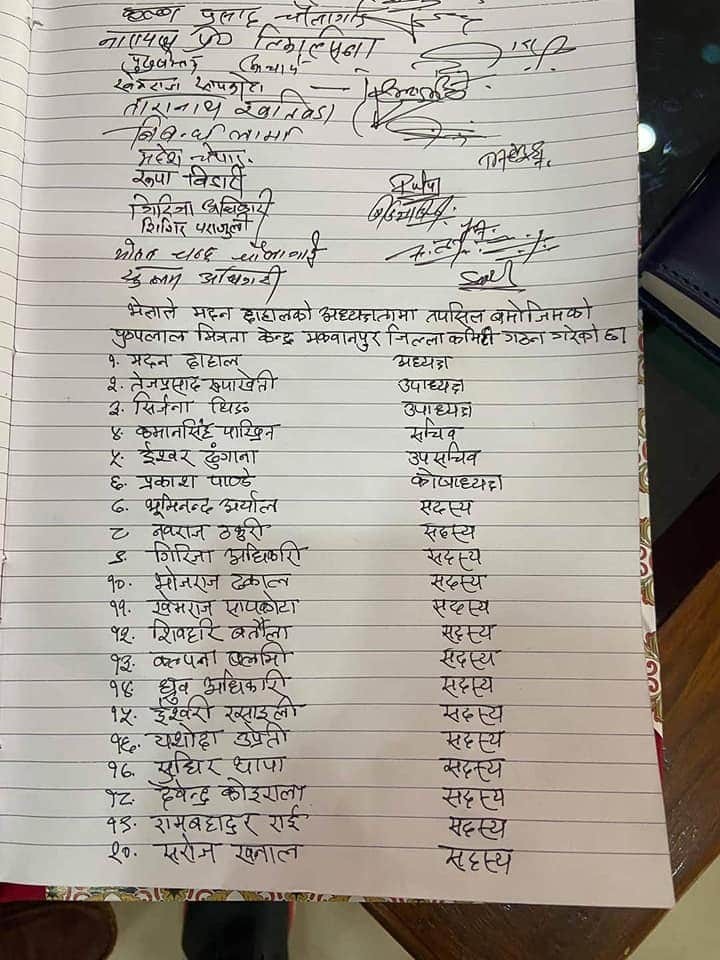 कृष्ण प्रसाद चौलागाईं
नारायण प्र० तिमल्सिना
खेमराज सापकोटा
तारानाथ खतिवडा
निबन्ध लामा
महेश नेपाल
रूपा विडारी Rupa
गिरिजा अधिकारी
शिशिर पराजुली
मोहन चन्द्र चौलागाई
अधिकारी
भेलाले मदन दाहालको अध्यक्षतामा तपसिल बमोजिमको
पुष्पलाल मित्रता केन्द्र मकवानपुर जिल्ला कमिटी गठन गरेको छ।
१. मदन दाहाल अध्यक्ष
२. तेजप्रसाद रूपाखेती उपाध्यक्ष
३. सिर्जना थिङ उपाध्यक्ष
४. कमानसिंह पाख्रिन सचिव
५. ईश्वर ढुंगाना उपसचिव
६. प्रकाश पाण्डे कोषाध्यक्ष
७. भूमिनन्द अर्याल सदस्य
८. नवराज ठकुरी सदस्य
९. गिरिजा अधिकारी सदस्य
१०. भोजराज ढकाल सदस्य
११. खेमराज सापकोटा सदस्य
१२. शिवहरि बर्तौला सदस्य
१३. कल्पना बलामी सदस्य
१४. ध्रुव अधिकारी सदस्य
१५. ईश्वरी रसाइली सदस्य
१६. यशोदा उप्रेती सदस्य
१७. सुधिर थापा सदस्य
१८. देवेन्द्र कोइराला सदस्य
१९. रामबहादुर राई सदस्य
२०. सरोज खनाल सदस्य